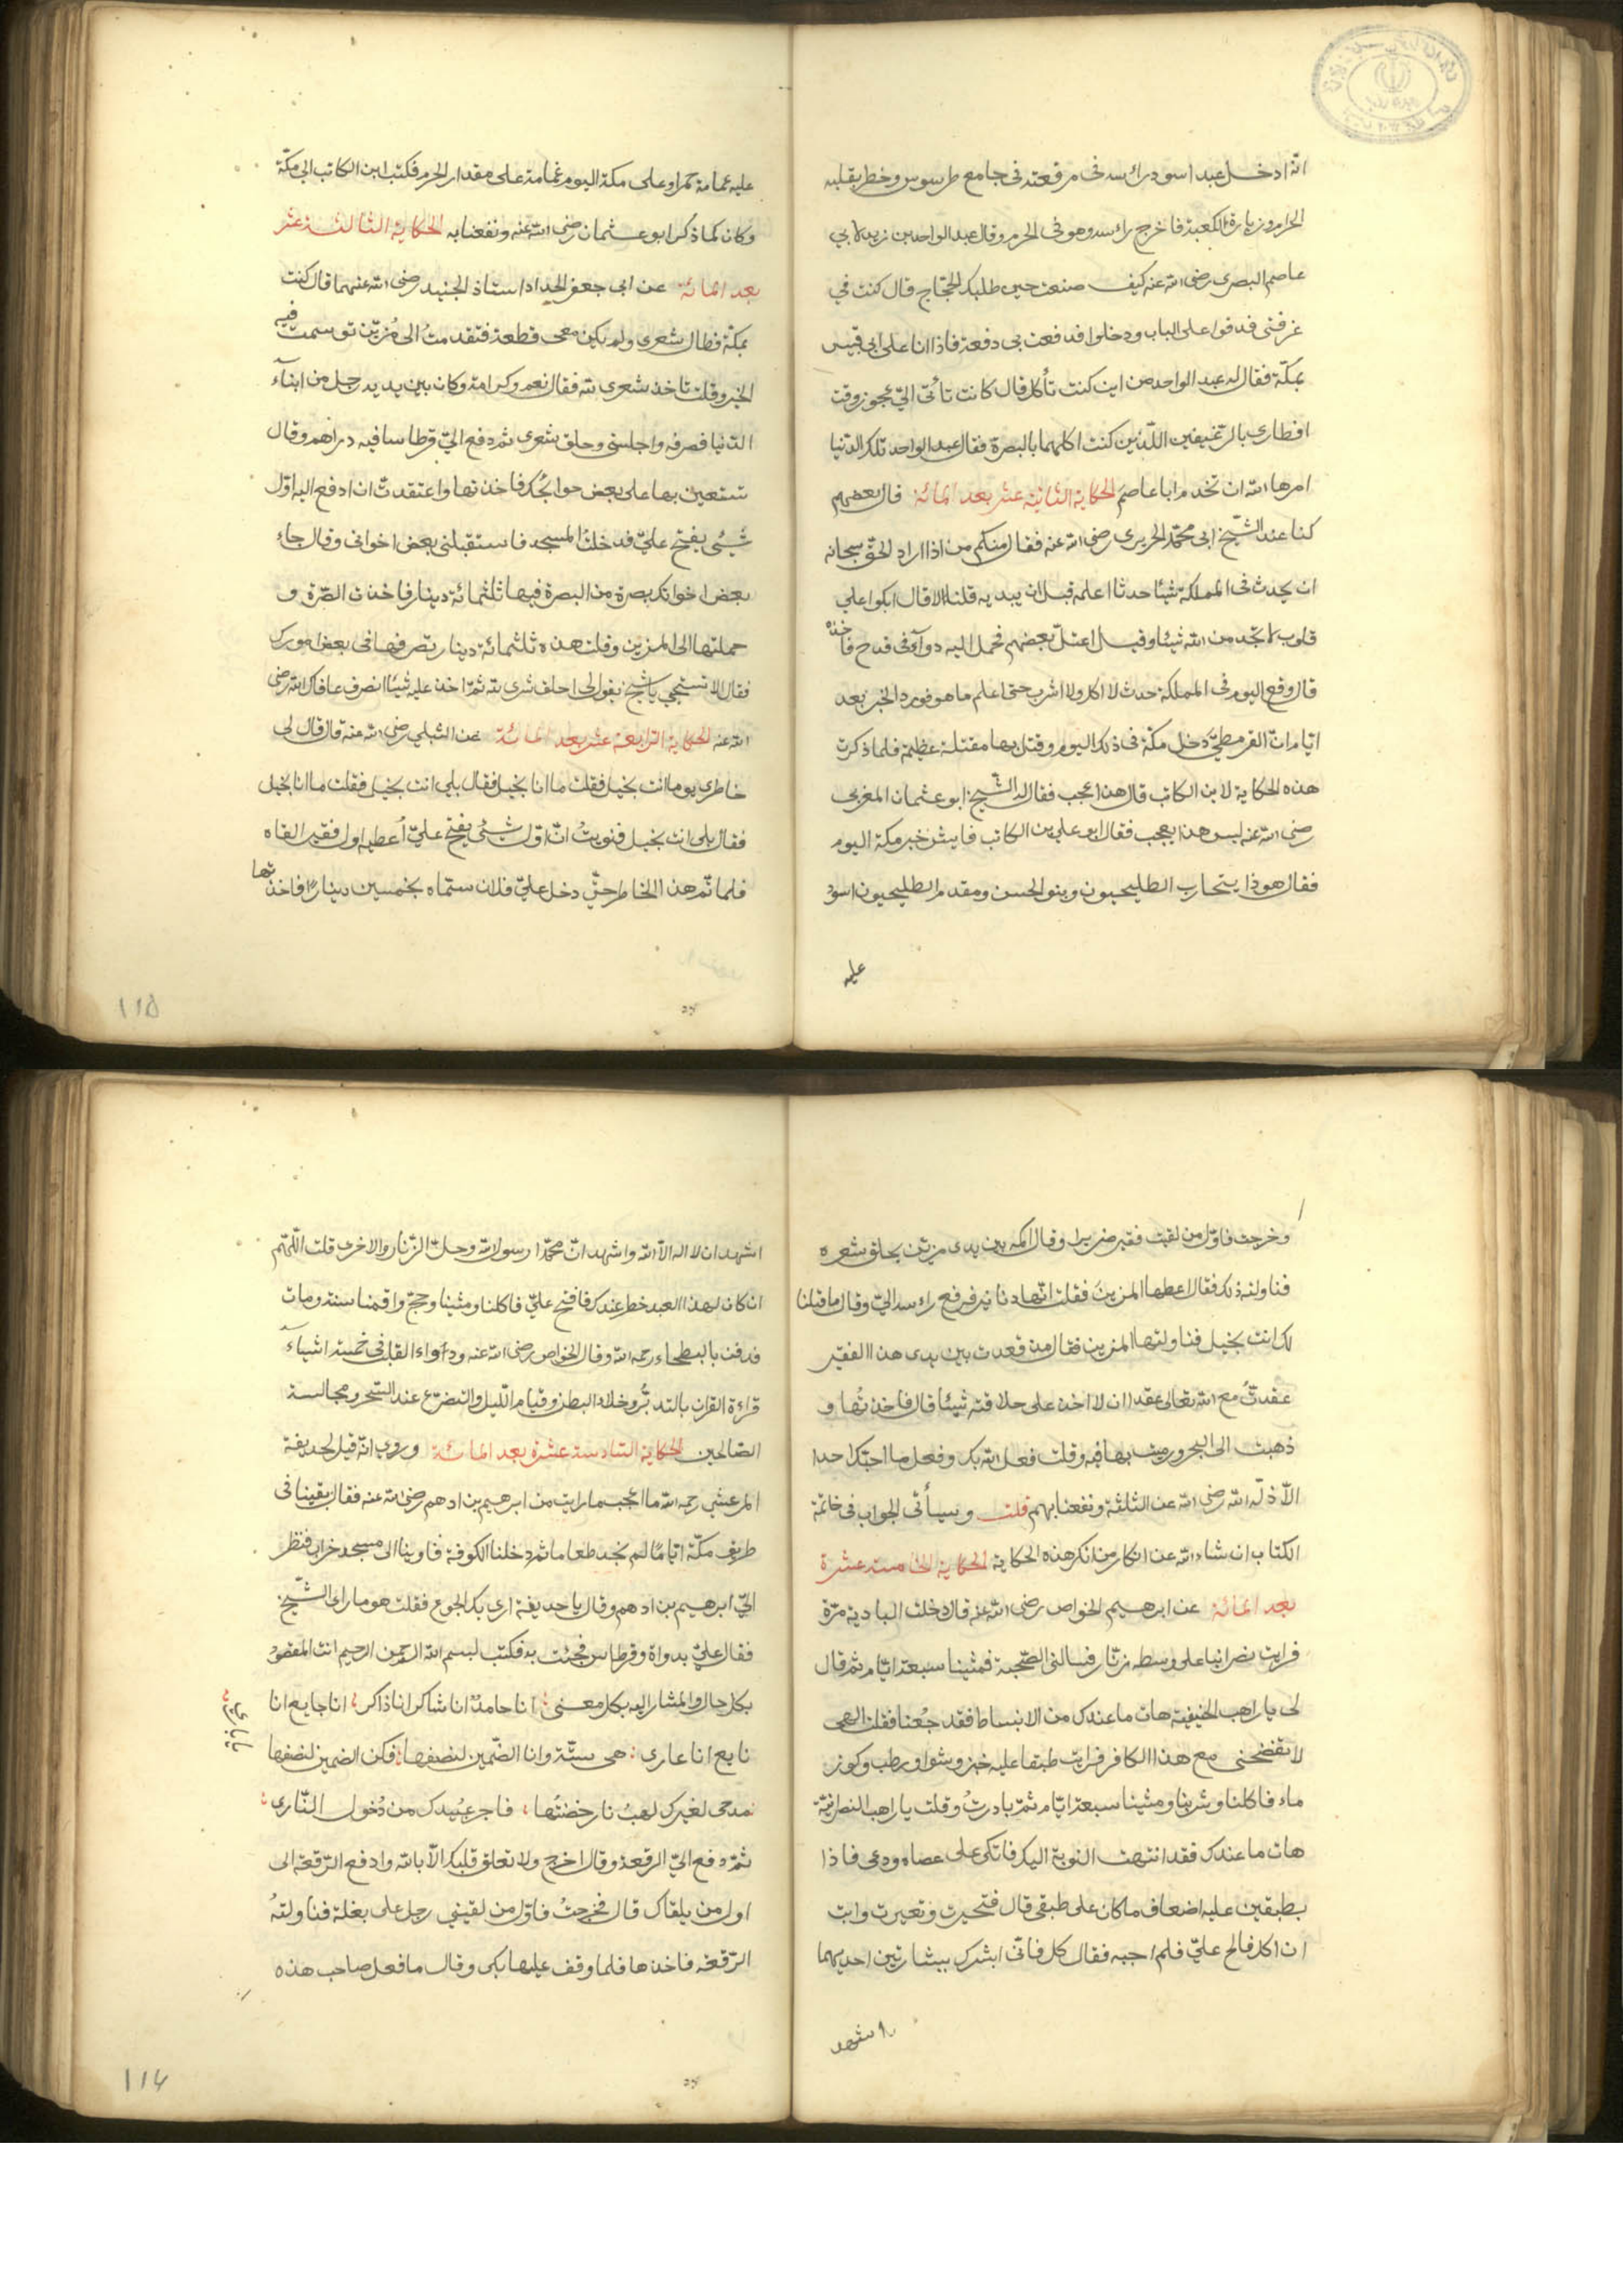 انه ادخل عبد اسود رأسه فى مرقعته فى جامع طرسوس وخطر بقلبه
الحرام وزيارة الكعبة فاخرج رأسه وهو فى الحرم وقال عبد الواحد بن زيد لابي
عاصم البصرى رضى الله عنه كيف صنعت حين طلبك الحجاج قال كنت في
غرفتى فدقوا على الباب ودخلوا فدفعت بى دفعة فاذا انا على ابى قبيس
بمكة فقال له عبد الواحد من اين كنت تأكل قال كانت تأتى الىّ عجوز وقت
افطارى بالرغيفين اللّذين كنت اكلهما بالبصرة فقال عبد الواحد تلك الدنيا
امرها الله ان تخدم ابا عاصم الحكاية الثانية عشر بعد المائة قال بعضهم
كنا عند الشيخ ابى محمد الحريرى رضى الله عنه فقال منكم من اذا اراد الحق سبحانه
ان يحدث فى المملكة شيئا حدثا اعلمه قبل ان يبديه قلنا لا قال ابكوا على
قلوب لا تجد من الله شيئا وقيل اعتل بعضهم فحمل اليه دوآء فى قدح فاخذه
قال وقع اليوم فى المملكة حدث لا اكل ولا اشرب حتى اعلم ما هو فورد الخبر بعد
ايام ان القرمطىّ دخل مكة فى ذلك اليوم وقتل بها مقتلة عظيمة فلما ذكرت
هذه الحكاية لابن الكاتب قال هذا عجب فقال له الشيخ ابو عثمان المغربى
رضى الله عنه ليس هذا بعجب فقال ابو على بن الكاتب فايش خبر مكة اليوم
فقال هوذا يتحارب الطليحيون وبنو الحسن ومقدم الطليحيون اسود
عليه
عليه عمامة حمراء وعلى مكة اليوم غمامة على مقدار الحرم فكتب ابن الكاتب الى مكة
وكان كما ذكر ابو عثمان رضى الله عنه ونفعنا به الحكاية الثالثة عشر
بعد المائة عن ابى جعفر الحداد استاذ الجنيد رضى الله عنهما قال كنت
بمكة فطال شعرى ولم يكن معى قطعة فتقدمت الى مُزيّن توسمت فيه
الخير وقلت تاخذ شعرى لله فقال نعم وكرامة وكان بين يديه رجل من ابنآء
الدنيا فصرفه واجلسنى وحلق شعرى ثم دفع الىّ قرطاسا فيه دراهم وقال
تستعين بها على بعض حوايجك فاخذتها واعتقدت ان ادفع اليه اوّل
شيئ يفتح علىّ فدخلت المسجد فاستقبلنى بعض اخوانى وقال جاء
بعض اخوانك بصرة من البصرة فيها ثلثمائة دينار فاخذت الصرّة و
حملتها الى المزين وقلت هذه ثلثمائة دينار تصرفها فى بعض امورك
فقال الا تستحيى يا شيخ تقول لى احلق شعرى لله ثم اخذ عليه شيئا انصرف عافاك الله رضى
الله عنه الحكاية الرابعة عشر بعد المائة عن الشبلى رضى الله عنه قال قال لى
خاطرى يوما انت بخيل فقلت ما انا بخيل فقال بلى انت بخيل فقلت ما انا بخيل
فقال بلى انت بخيل فنويتُ انّ اوّل شيئ يفتح علىّ أعطيه اول فقير القاه
فلما تم هذا الخاطر حتّى دخل علىّ فلان سماه بخمسين دينارًا فاخذتها
١١٥
وخرجت فاوّل من لقيت فقير ضريرا وقال اكمه بين يدى مزيّن يحلق شعره
فناولته ذلك فقال اعطها المزينَ فقلت انها دنانير فرفع رأسه الىّ وقال ما قلنا
لك انت بخيل فناولتها المزين فقال منذ قعدت بين يدى هذا الفقير
عقدتُ مع الله تعالى عقدا ان لا اخذ على حلاقته شيئا قال فاخذتُها و
ذهبت الى البحر ورميت بها فيه وقلت فعل الله بك وفعل ما احبّك احد
الّا ذلّه الله رضى الله عن الثلثة ونفعنا بهم قلت وسيأتى الجواب فى خاتمة
الكتاب ان شاء الله عن انكار من انكر هذه الحكاية الحكاية الخامسة عشرة
بعد المائة عن ابرهيم الخواص رضى الله عنه قال دخلت البادية مرّة
فرايت نصرانيا على وسطه زنّار فسالنى الصّحبة فمشينا سبعة ايّام ثم قال
لى يا راهب الحنيفية هات ما عندك من الانبساط فقد جُعنا فقلت الهى
لا تفضحنى مع هذا الكافر فرايت طبقا عليه خبز وشواء ورطب وكوز
ماء فاكلنا وشربنا ومشينا سبعة ايام ثمّ بادرتُ وقلت يا راهب النصرانيّة
هات ما عندك فقد انتهت النوبة اليك فاتكى على عصاه ودعى فاذا
بطبقين عليه اضعاف ما كان على طبقى قال فتحيرت وتغيرت وابيت
ان اكل فالح علىّ فلم اجبه فقال كل فانّى ابشرك ببشارتين احديهما
اشهد
اشهد ان لا اله الّا الله واشهد انّ محمّدا رسول الله وحلّ الزنار والاخرى قلت اللّهم
ان كان لهذا العبد خطر عندك فافتح علىّ فاكلنا ومشينا وحجّ واقمنا سنة ومات
فدفن بالبطحاء رحمه الله وقال الخواص رضى الله عنه ودآواء القلب فى خمسة اشيآء
قراءة القران بالتدبّر وخلاء البطن وقيام اللّيل والتضرّع عند السّحر ومجالسة
الصّالحين الحكاية السّادسة عشرة بعد المائة وروى انّه قيل لحديفة
المرعشى رحمه الله ما اعجب ما رايت من ابرهيم بن ادهم رضى الله عنه فقال بقينا فى
طريق مكّة ايّامًا لم نجد طعاما ثم دخلنا الكوفة فاوينا الى مسجد خراب فنظر
الىّ ابرهيم بن ادهم وقال يا حديفة ارى بك الجوع فقلت هو ما راى الشيخ
فقال علىّ بدواة وقرطاس فجئت به فكتب بسم الله الرحمن الرحيم انت المقصود
بكل حال والمشار اليه بكل معنى انا حامدٌ انا شاكر انا ذاكر انا جايع انا
نايع انا عارى هى ستّة وانا الضّمين لنصفها فكن الضمين لنصفها
يا بارى
مدحى لغيرك لهبُ نار خضتُها فاجر عبيدك من دُخول النّارى
ثمّ دفع الىّ الرقعة وقال اخرج ولا تعلق قلبك الّا بالله وادفع الرّقعة الى
اول من يلقاك قال فخرجتُ فاوّل من لقينى رجل على بغلة فناولتهُ
الرّقعة فاخذها فلما وقف عليها بكى وقال ما فعل صاحب هذه
١١٦